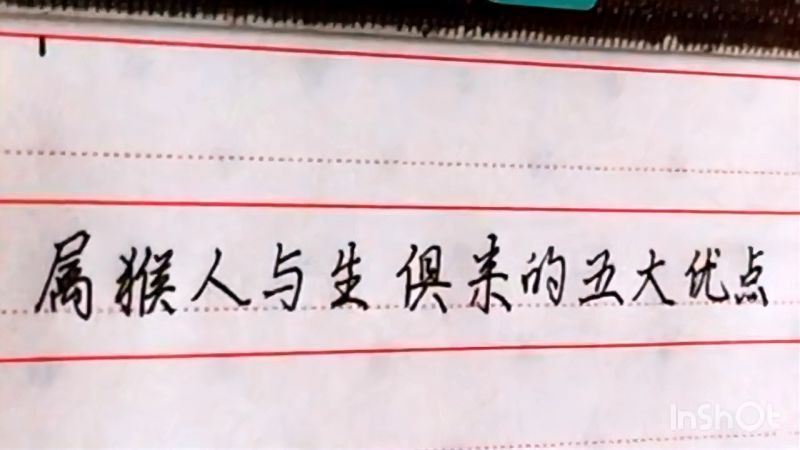 属猴人与生俱来的五大优点
InShOt